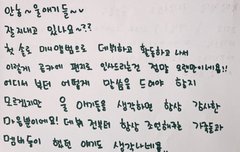 안농~울애기들~
잘지내고 있나요~??
첫 솔로 미니앨범으로 데뷔하고 활동하고 나서
이렇게 공카에 편지로 인사드리는건 정말 오랜만이네요!!
어디서 부터 어떻게 말씀을 드려야 할지
모르겠지만 울 애기들을 생각하면 항상 감사한
마음뿐이에요! 데뷔 전부터 항상 조언해주는 가족들과
멤버들이 했던 얘기도 생각나네용